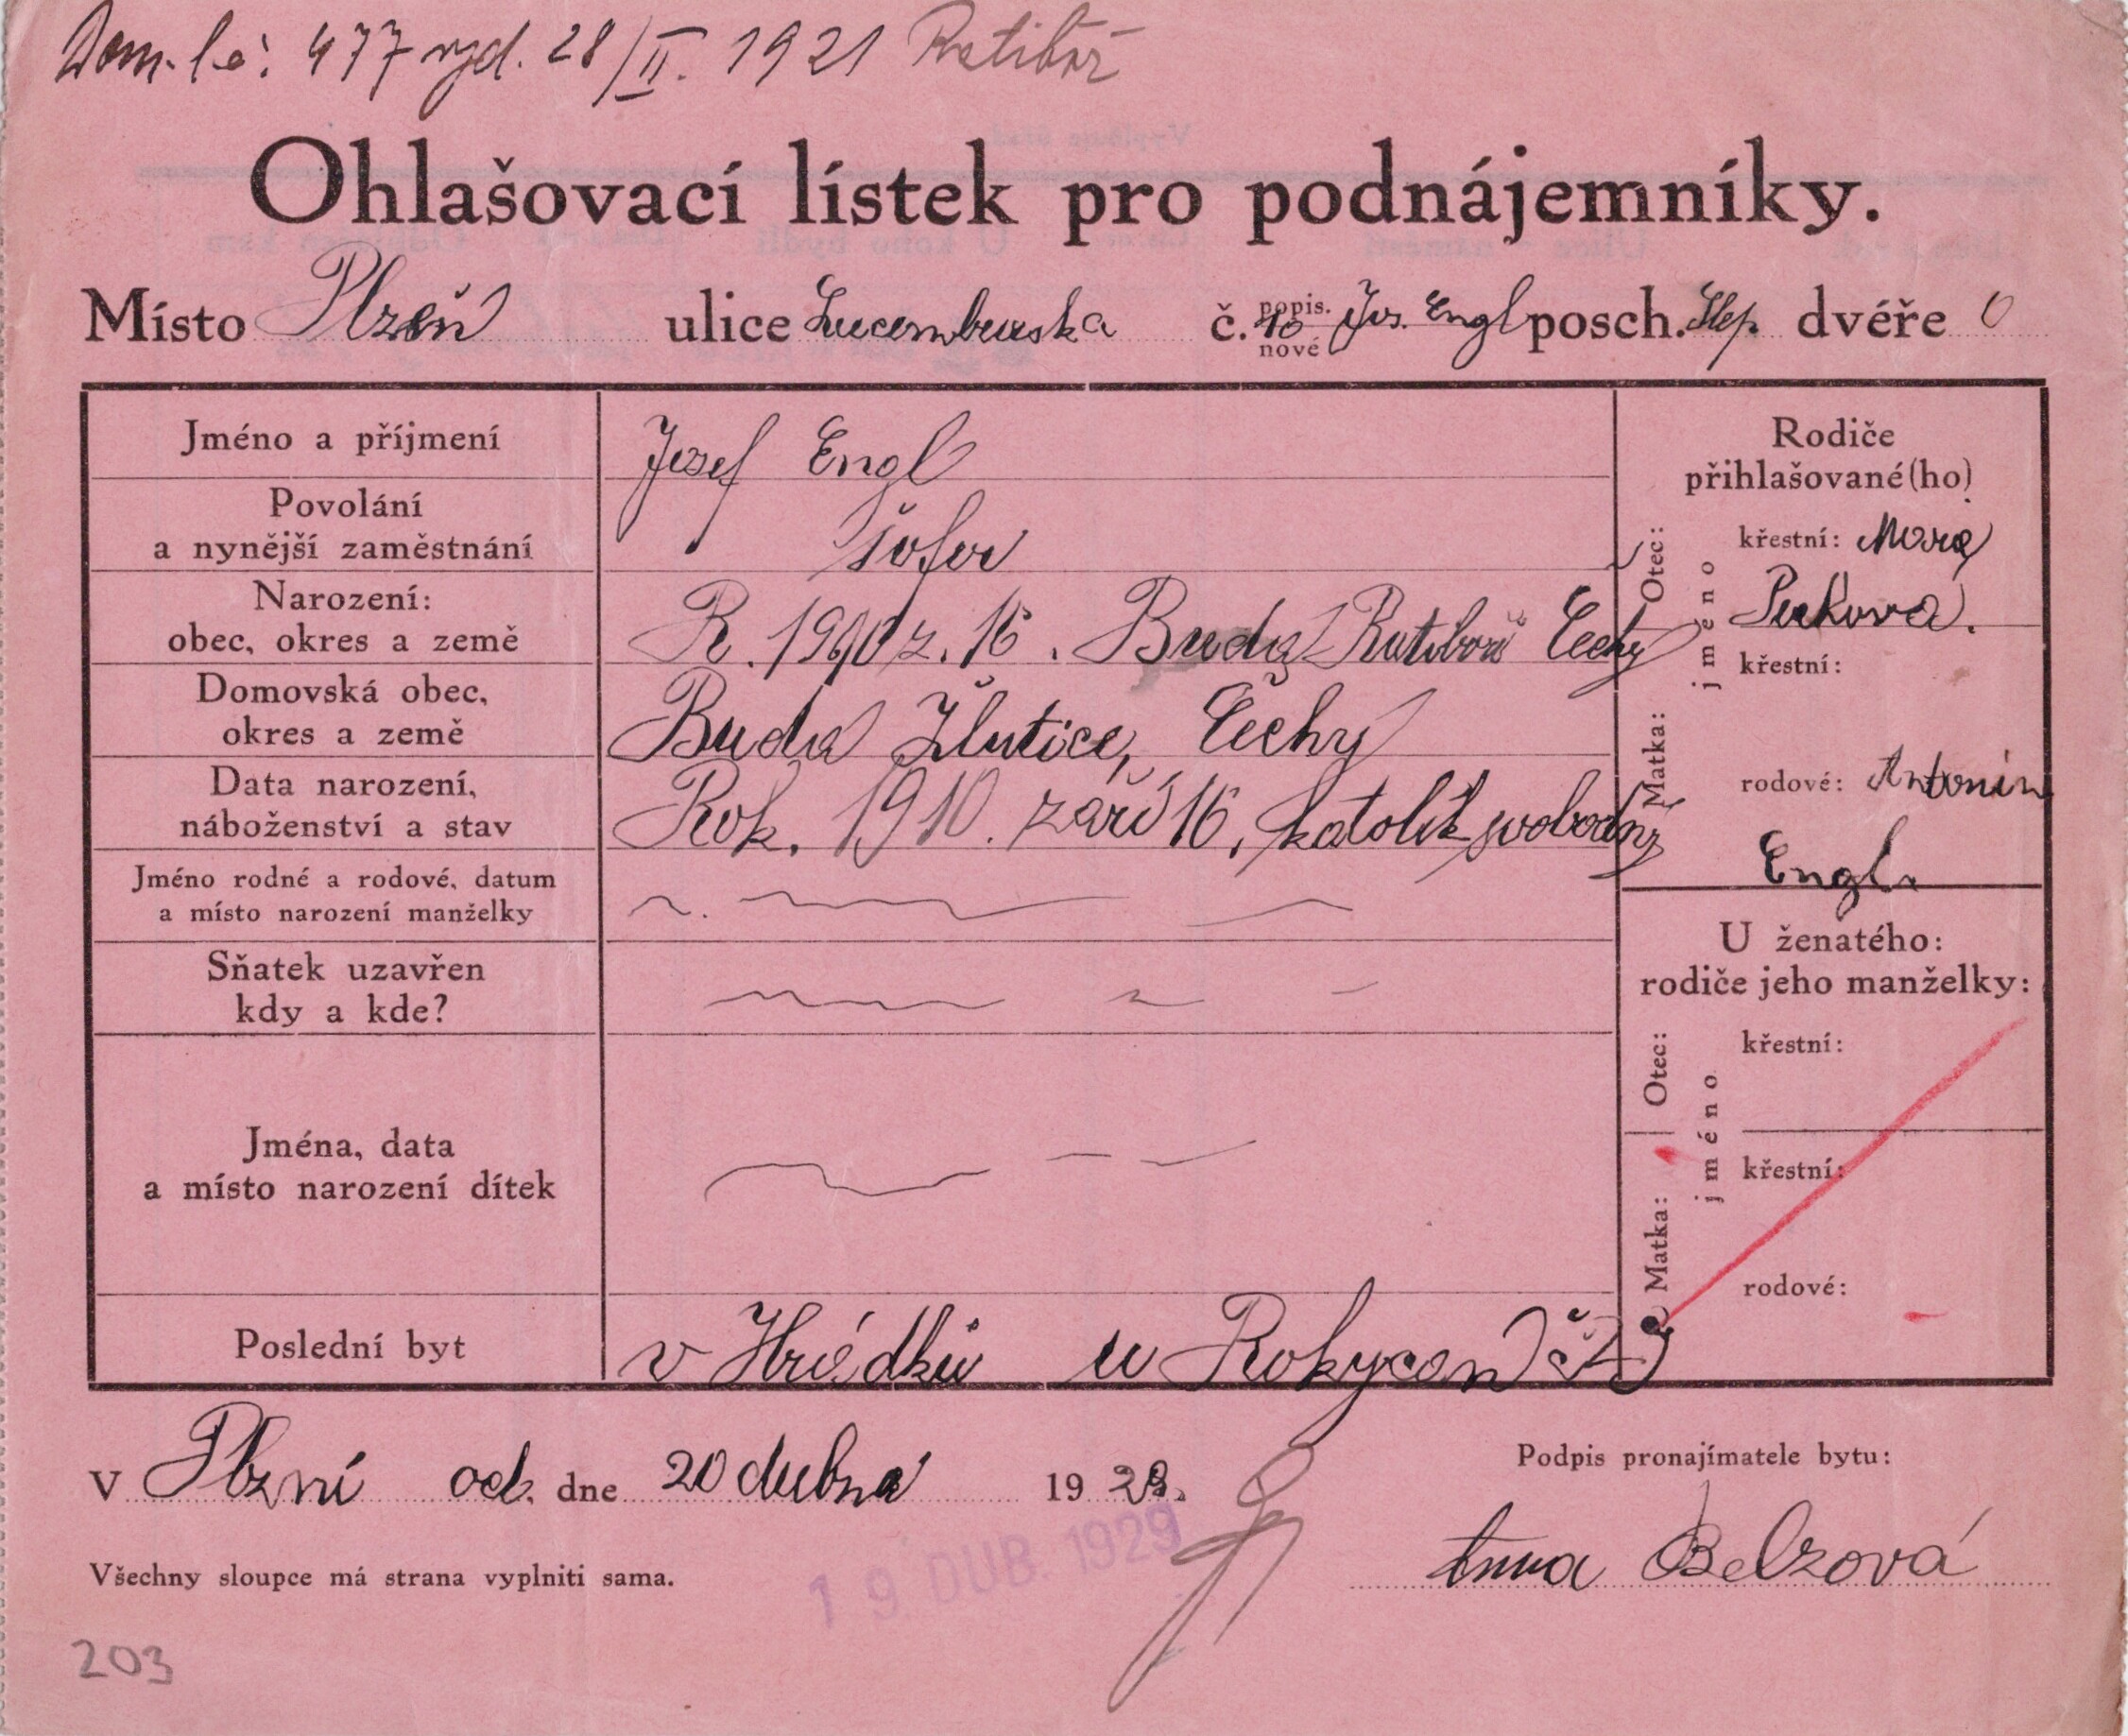 Dom. l. č: 477 vyd. 28/II. 1921 Ratiboř
Ohlašovací lístek pro podnájemníky.
Místo Plzeň ulice Lucemburska č. popis. nové 10 Jos. Engl posch. dvéře 0
Jméno a příjmení Josef Engl
Povolání
a nynější zaměstnání šofer
Narození:
obec, okres a země R. 1910 z. 16. Buda Ratiboř Čechy
Domovská obec,
okres a země Buda Žlutice, Čechy
Data narození,
náboženství a stav Rok. 1910. září 16, katolík svobodný
Jméno rodné a rodové, datum
a místo narození manželky
Sňatek uzavřen
kdy a kde?
Jména, data
a místo narození dítek
Poslední byt v Hrádku u Rokycan č.
Rodiče
přihlašované(ho)
Otec: jméno křestní: Marie
křestní:
Matka: rodové: Antonín
Engl.
U ženatého:
rodiče jeho manželky:
Otec: jméno křestní:
křestní:
Matka: rodové:
V Plzni od. dne 20 dubna 1929.
19 DUB. 1929
Podpis pronajímatele bytu:
Anna Belzová
Všechny sloupce má strana vyplniti sama.
203